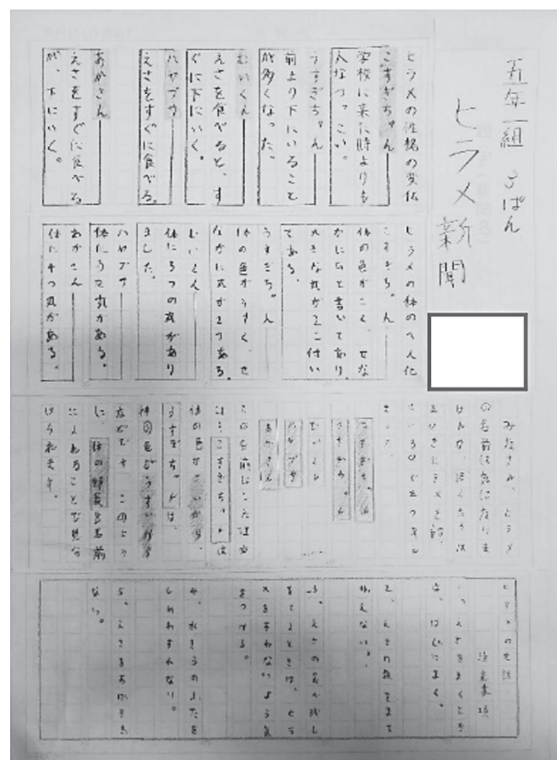 五年一組 3ぱん
ヒラメ新聞
ヒラメの性格の変化
こすぎちゃん
学校に来た時よりも
人なつっこい。
うすぎちゃん
前より下にいること
が多くなった。
むいくん
えさを食べると、す
ぐに下にいく。
ハヤブサ
えさをすぐに食べる。
あかさん
えさをすぐに食べる
が、下にいく。
ヒラメの体のへん化
こすぎちゃん
体の色がこく、せな
かにひと書いてあり、
大きな丸が2こ付い
てある。
うすぎちゃん
体の色がうすく、せ
なかに丸が2つある。
むいくん
体に3つの丸があり
ました。
ハヤブサ
体に5つ丸がある。
あかさん
体に4つ丸がある。
みなさん、ヒラメ
の名前は気になりま
せんか。
こすぎちゃん
うすぎちゃん
むいくん
ハヤブサ
あかさん
この名前にした理由
は、こすぎちゃんは
体の色がこいから、
うすぎちゃんは、
体の色がうすいから
などです。このよう
に、体の特長を名前
に入れることで見分
けられます。
ヒラメの世話
注意事項
1、えさをまくとき
は、はじにまく。
2、えさの数をまち
がえない。
3、えさの食べ残し
をとるときは、ヒラ
メをすわないよう気
をつける。
4、水そうのふたを
しめわすれない。
5、えさをあげすぎ
ない。